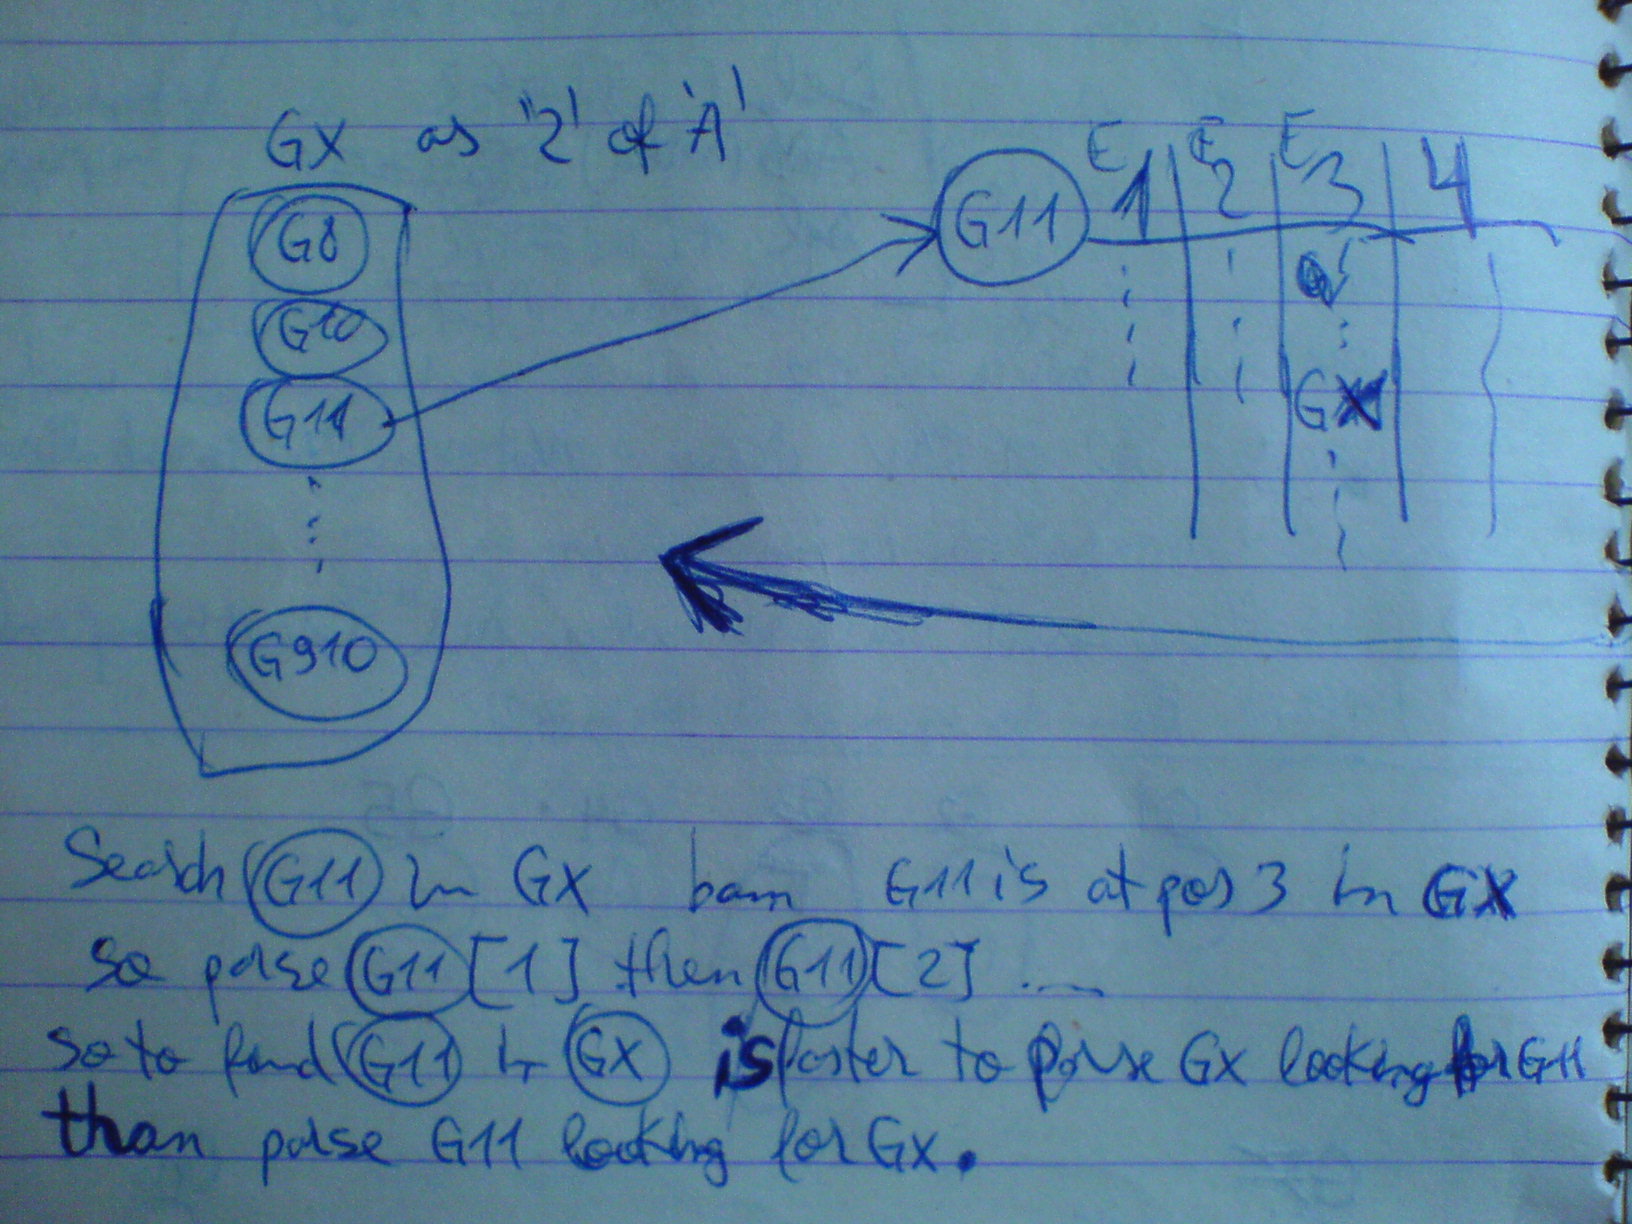 GX as '2' of 'A'
G8
G10
G11
G910
G11
E1 E2 E3 4
GX
Search G11 in GX bam G11 is at pos 3 in GX
so parse G11 [1] then G11 [2] ....
so to find G11 in GX is faster to parse GX looking for G11
than parse G11 looking for GX.